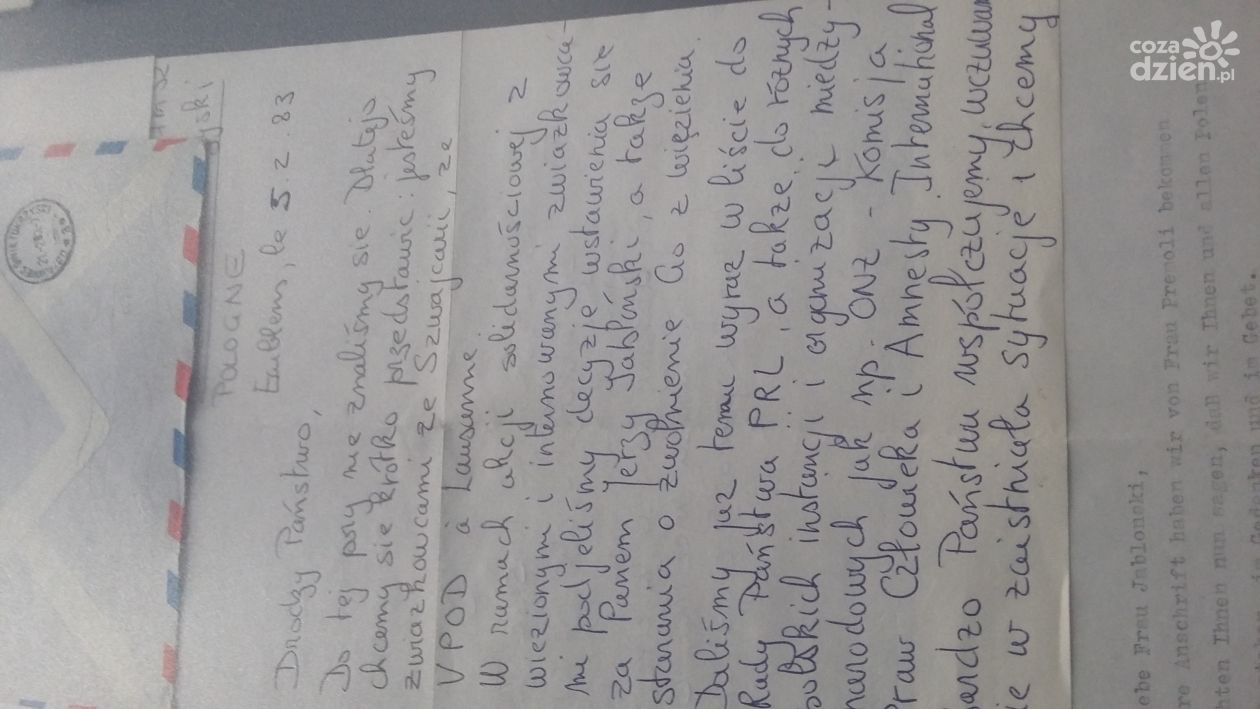 coza
dzien.pl
POLOGNE
Eublens, le 5.2.83
Drodzy Państwo,
Do tej pory nie znaliśmy się. Dlatego
chcemy się krótko przedstawić: jesteśmy
związkowcami ze Szwajcarii, ze
VPOD à Lausanne
W ramach akcji solidarnościowej z
więzionymi i internowanymi związkowca-
mi podjeliśmy decyzję wstawienia się
za Panem Jerzy Jabłoński, a także
starania o zwolnienie Go z więzienia.
Daliśmy już temu wyraz w liście do
Rady Państwa PRL, a także do różnych
polskich instancji i organizacji między-
narodowych jak np. ONZ - Komisja
Praw Człowieka i Amnesty International
Bardzo Państwu współczujemy, wczuwamy
się w zaistniałą sytuację i chcemy
ebe Frau Jablonski,
re Anschrift haben wir von Frau Prevoli bekommen
hten Ihnen nun sagen, daß wir Ihnen und allen Polen
und im Gebet.